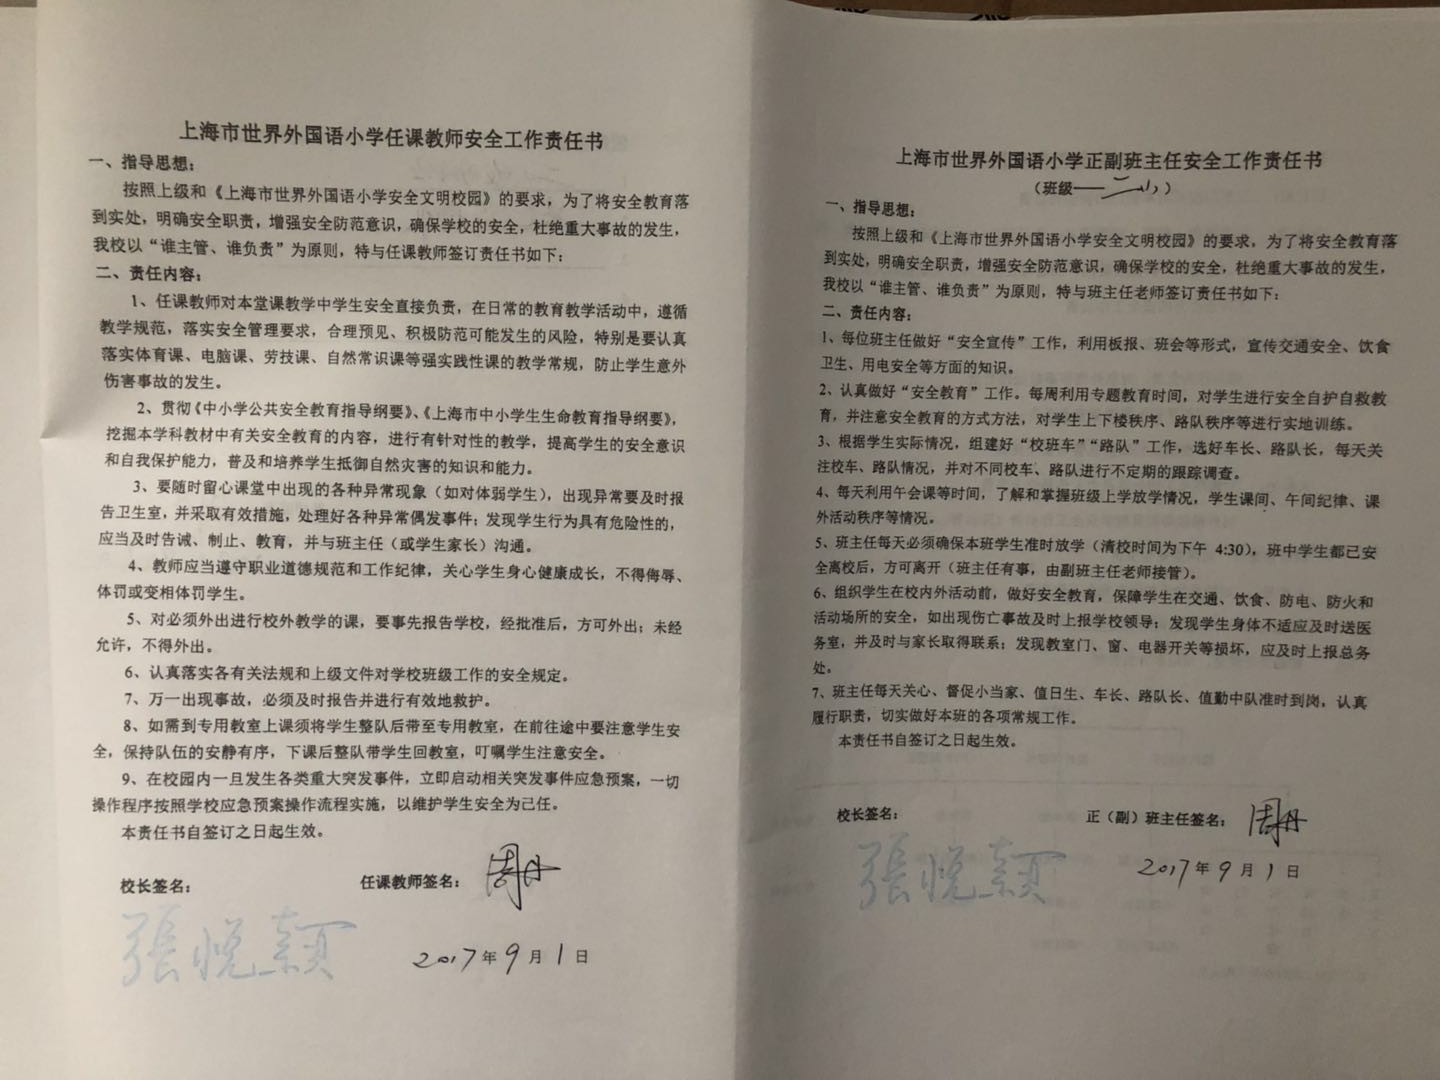 上海市世界外国语小学任课教师安全工作责任书
一、指导思想：
按照上级和《上海市世界外国语小学安全文明校园》的要求，为了将安全教育落
到实处，明确安全职责，增强安全防范意识，确保学校的安全，杜绝重大事故的发生，
我校以“谁主管、谁负责”为原则，特与任课教师签订责任书如下：
二、责任内容：
1、任课教师对本堂课教学中学生安全直接负责，在日常的教育教学活动中，遵循
教学规范，落实安全管理要求，合理预见、积极防范可能发生的风险，特别是要认真
落实体育课、电脑课、劳技课、自然常识课等强实践性课的教学常规，防止学生意外
伤害事故的发生。
2、贯彻《中小学公共安全教育指导纲要》、《上海市中小学生生命教育指导纲要》，
挖掘本学科教材中有关安全教育的内容，进行有针对性的教学，提高学生的安全意识
和自我保护能力，普及和培养学生抵御自然灾害的知识和能力。
3、要随时留心课堂中出现的各种异常现象（如对体弱学生），出现异常要及时报
告卫生室，并采取有效措施，处理好各种异常偶发事件；发现学生行为具有危险性的，
应当及时告诫、制止、教育，并与班主任（或学生家长）沟通。
4、教师应当遵守职业道德规范和工作纪律，关心学生身心健康成长，不得侮辱、
体罚或变相体罚学生。
5、对必须外出进行校外教学的课，要事先报告学校，经批准后，方可外出；未经
允许，不得外出。
6、认真落实各有关法规和上级文件对学校班级工作的安全规定。
7、万一出现事故，必须及时报告并进行有效地救护。
8、如需到专用教室上课须将学生整队后带至专用教室，在前往途中要注意学生安
全，保持队伍的安静有序，下课后整队带学生回教室，叮嘱学生注意安全。
9、在校园内一旦发生各类重大突发事件，立即启动相关突发事件应急预案，一切
操作程序按照学校应急预案操作流程实施，以维护学生安全为己任。
本责任书自签订之日起生效。
校长签名： 任课教师签名：周丹
張悦颖
2017年9月1日
上海市世界外国语小学正副班主任安全工作责任书
（班级）
一、指导思想：
按照上级和《上海市世界外国语小学安全文明校园》的要求，为了将安全教育落
到实处，明确安全职责，增强安全防范意识，确保学校的安全，杜绝重大事故的发生，
我校以“谁主管、谁负责”为原则，特与班主任老师签订责任书如下：
二、责任内容：
1、每位班主任做好“安全宣传”工作，利用板报、班会等形式，宣传交通安全、饮食
卫生、用电安全等方面的知识。
2、认真做好“安全教育”工作。每周利用专题教育时间，对学生进行安全自护自救教
育，并注意安全教育的方式方法，对学生上下楼秩序、路队秩序等进行实地训练。
3、根据学生实际情况，组建好“校班车”“路队”工作，选好车长、路队长，每天关
注校车、路队情况，并对不同校车、路队进行不定期的跟踪调查。
4、每天利用午会课等时间，了解和掌握班级上学放学情况，学生课间、午间纪律、课
外活动秩序等情况。
5、班主任每天必须确保本班学生准时放学（清校时间为下午 4:30），班中学生都已安
全离校后，方可离开（班主任有事，由副班主任老师接管）。
6、组织学生在校内外活动前，做好安全教育，保障学生在交通、饮食、防电、防火和
活动场所的安全，如出现伤亡事故及时上报学校领导；发现学生身体不适应及时送医
务室，并及时与家长取得联系；发现教室门、窗、电器开关等损坏，应及时上报总务
处。
7、班主任每天关心、督促小当家、值日生、车长、路队长、值勤中队准时到岗，认真
履行职责，切实做好本班的各项常规工作。
本责任书自签订之日起生效。
校长签名： 正（副）班主任签名：周丹
張悦颖
2017年9月1日